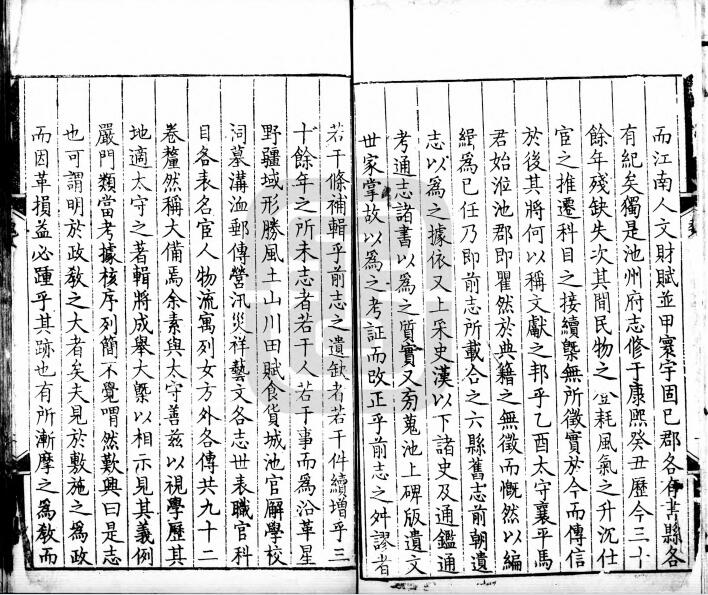 而江南人文財賦並甲寰宇固已郡各有書縣各
有紀矣獨是池州府志修于康熙癸丑歷今三十
餘年殘缺失次其間民物之登耗風氣之升沉仕
宦之推遷科目之接續槩無所徵實於今而傳信
於後其將何以稱文獻之邦乎乙酉太守襄平馬
君始涖池郡即瞿然於典籍之無徵而慨然以編
緝爲已任乃即前志所載合之六縣舊志前朝遺
志以爲之據依又上采史漢以下諸史及通鑑通
考通志諸書以爲之質實又旁蒐池上碑版遺文
世家掌故以爲之考証而改正乎前志之舛謬者
若干條補輯乎前志之遺缺者若干件續增乎三
十餘年之所未志者若干人若于事而爲沿革星
野疆域形勝風土山川田賦食貨城池官廨學校
祠墓溝洫郵傳營汛災祥藝文各志世表職官科
目各表名宦人物流寓列女方外各傳共九十二
卷釐然稱大備焉余素與太守善兹以視學歷其
地適太守之著輯將成舉大槩以相示見其義例
嚴門類當考據核序列簡不覺喟然歎興曰是志
也可謂明於政教之大者矣夫見於敷施之爲政
而因革損益必踵乎其跡也有所漸摩之爲教而